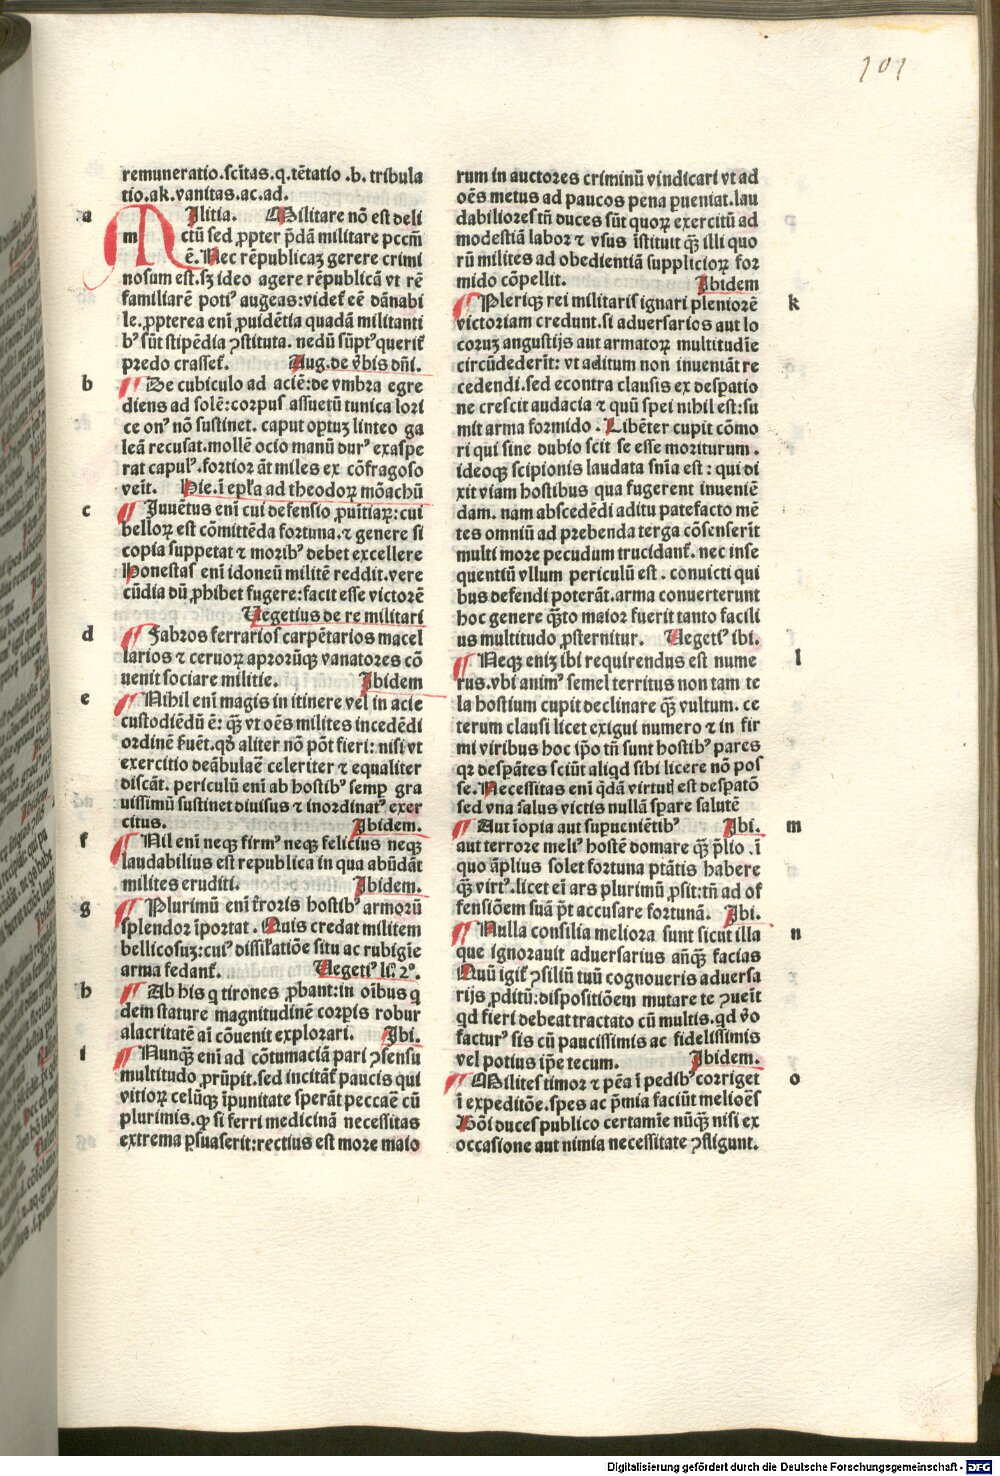 101
remuneratio.scītas.q.tētatio .b. tribula
tio.ak.vanitas.ac.ad.
a
MIlitia. Militare nō est deli
m ctū sed ꝓpter p̄dā militare pccm̄
ē. Nec rēpublicaꝫ gerere crimi
nosum est.sꝫ ideo agere rēpublicā vt rē
familiarē potiꝰ augeas:videt͛ eē dānabi
le.ꝓpterea enī ꝓuidētia quadā militanti
bꝰ sūt stipēdia ꝯstituta. nedū sūptꝰ querit͛
predo crasset͛. Aug.de v̄bis dn̄i.
b
¶ De cubiculo ad aciē:de vmbra egre
diens ad solē:corpus assuetū tunica lori
ce onꝰ nō sustinet. caput optuꝫ linteo ga
leā recusat.mollē ocio manū durꝰ exaspe
rat capulꝰ.fortior āt miles ex cōfragoso
veīt. Hie.ī ep̄la ad theodoꝝ mōachū
c
¶ Juuētus enī cui defensio ꝓuītiaꝝ:cui
belloꝝ est cōmittēda fortuna.⁊ genere si
copia suppetat ⁊ moribꝰ debet excellere
Honestas enī idoneū militē reddit.vere
cūdia dū ꝓhibet fugere:facit esse victorē
Vegetius de re militari
d
¶ Fabros ferrarios carpētarios macel
larios ⁊ ceruoꝝ aproꝝūqꝫ vanatores cō
uenit sociare militie. Ibidem
e
¶ Nihil enī magis in itinere vel in acie
custodiēdū ē: qꝫ̄ vt oēs milites incedēdi
ordinē ſuēt.qd̄ aliter nō pōt fieri: nisi vt
exercitio deābulaē celeriter ⁊ equaliter
discāt. periculū enī ab hostibꝰ semꝑ gra
uissimū sustinet diuisus ⁊ inordinatꝰ exer
citus. Ibidem.
f
¶ Nil enī neqꝫ firmꝰ neqꝫ felicius neqꝫ
laudabilius est republica in qua abūdāt
milites eruditi. Ibidem.
g
¶ Plurimū enī t͛roris hostibꝰ armorū
splendor īportat . Quis credat militem
bellicosuꝫ:cuiꝰ dissil̄atiōe situ ac rubigīe
arma fedant͛. Vegetiꝰ li͛. 2°.
h
¶ Ab his q tirones ꝓbant:in oībus q
dem stature magnitudinē corꝑis robur
alacritatē ai cōuenit explorari. Ibi.
i
¶ Nunqꝫ̄ enī ad cōtumaciā pari ꝯsensu
multitudo ꝓrūpit.sed incitāt͛ paucis qui
vitioꝝ celūqꝫ īpunitate sperāt peccaē cū
plurimis.ꝙ si ferri medicinā necessitas
extrema ꝑsuaserit:rectius est more maio
rum in auctores criminū vindicari vt ad
oēs metus ad paucos pena ꝑueniat.lau
dabiliores tn̄ duces sūt quoꝝ exercitū ad
modestiā labor ⁊ vsus īstituit qꝫ̄ illi quo
rū milites ad obedientiā supplicioꝝ for
mido cōpellit. Ibidem
k
¶ Pleriqꝫ rei militarıſ ignari pleniorē
victoriam credunt.si aduersarios aut lo
coruꝫ angustijs aut armatoꝝ multitudīe
circūdederīt: vt aditum non inueniāt re
cedendi.sed econtra clausis ex despatio
ne crescit audacia ⁊ quū spei nihil est:su
mit arma formido . Libēter cupit cōmo
ri qui sine dubio scit se esse moriturum .
ideoqꝫ scipionis laudata sn̄ia est : qui di
xit viam hostibus qua fugerent inueniē
dam. nam abscedēdi aditu patefacto mē
tes omniū ad prebenda terga cōsenserīt
multi more pecudum trucidant͛. nec inse
quentiū vllum periculū est . conuicti qui
bus defendi poterāt.arma conuerterunt
hoc genere qꝫ̄to maior fuerit tanto facili
us multitudo ꝓsternitur. Vegetiꝰ ibi.
l
¶ Neqꝫ eniꝫ ibi requirendus est nume
rus.vbi animꝰ semel territus non tam te
la hostium cupit declinare qꝫ̄ vultum. ce
terum clausi licet exigui numero ⁊ in fir
mi viribus hoc ip̄o tn̄ sunt hostibꝰ pares
qꝛ despātes sciūt aliqd sibi licere nō pos
se. Necessitas enī qdā virtutꝭ est despatō
sed vna salus victis nullā sꝑare salutē
m
¶ Aut īopia aut suꝑueniētibꝰ Ibi.
aut terrore meliꝰ hostē domare qꝫ̄ p̄lio . ī
quo āplius solet fortuna ptātis habere
qꝫ̄ virtꝰ.licet eī ars plurimū ꝓsit:tn̄ ad of
fensiōem suā p̄t accusare fortunā. Ibi.
n
¶ Nulla consilia meliora sunt sicut illa
que ignorauit aduersarius an̄qꝫ̄ facias
Quū igit͛ ꝯsiliū tuū cognoueris aduersa
rijs ꝓditū:dispositiōem mutare te ꝯueīt
qd fieri debeat tractato cū multis.qd v̄o
facturꝰ sis cū paucissimis ac fidelissimis
vel potius ip̄e tecum. Ibidem.
o
¶ Milites timor ⁊ pēa ī pedibꝰ corriget
ī expeditōe.spes ac p̄mia faciūt melioēs
Bōi duces publico certamīe nūqꝫ̄ nisi ex
occasione aut nimia necessitate ꝯfligunt.
Digitalisierung gefördert durch die Deutsche Forschungsgemeinschaft - DFG